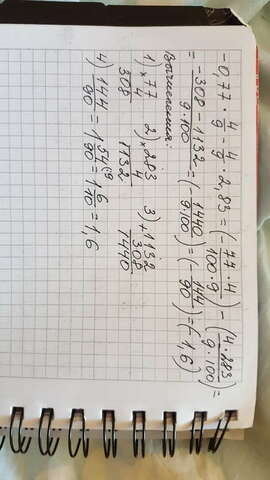 -0,77 · 4/9 - 4/9 · 2,83 = (- 77·4/100·9) - (4·283/9·100) =
= -308-1132/9·100 = (- 1440/9·100) = (- 144/90) = (-1,6)
Вычисления:
1) 77 2) 283 3) 1132
× 4 × 4 + 308
308 1132 1440
4) 144/90 = 1 54/90 (9 = 1 6/10 = 1,6